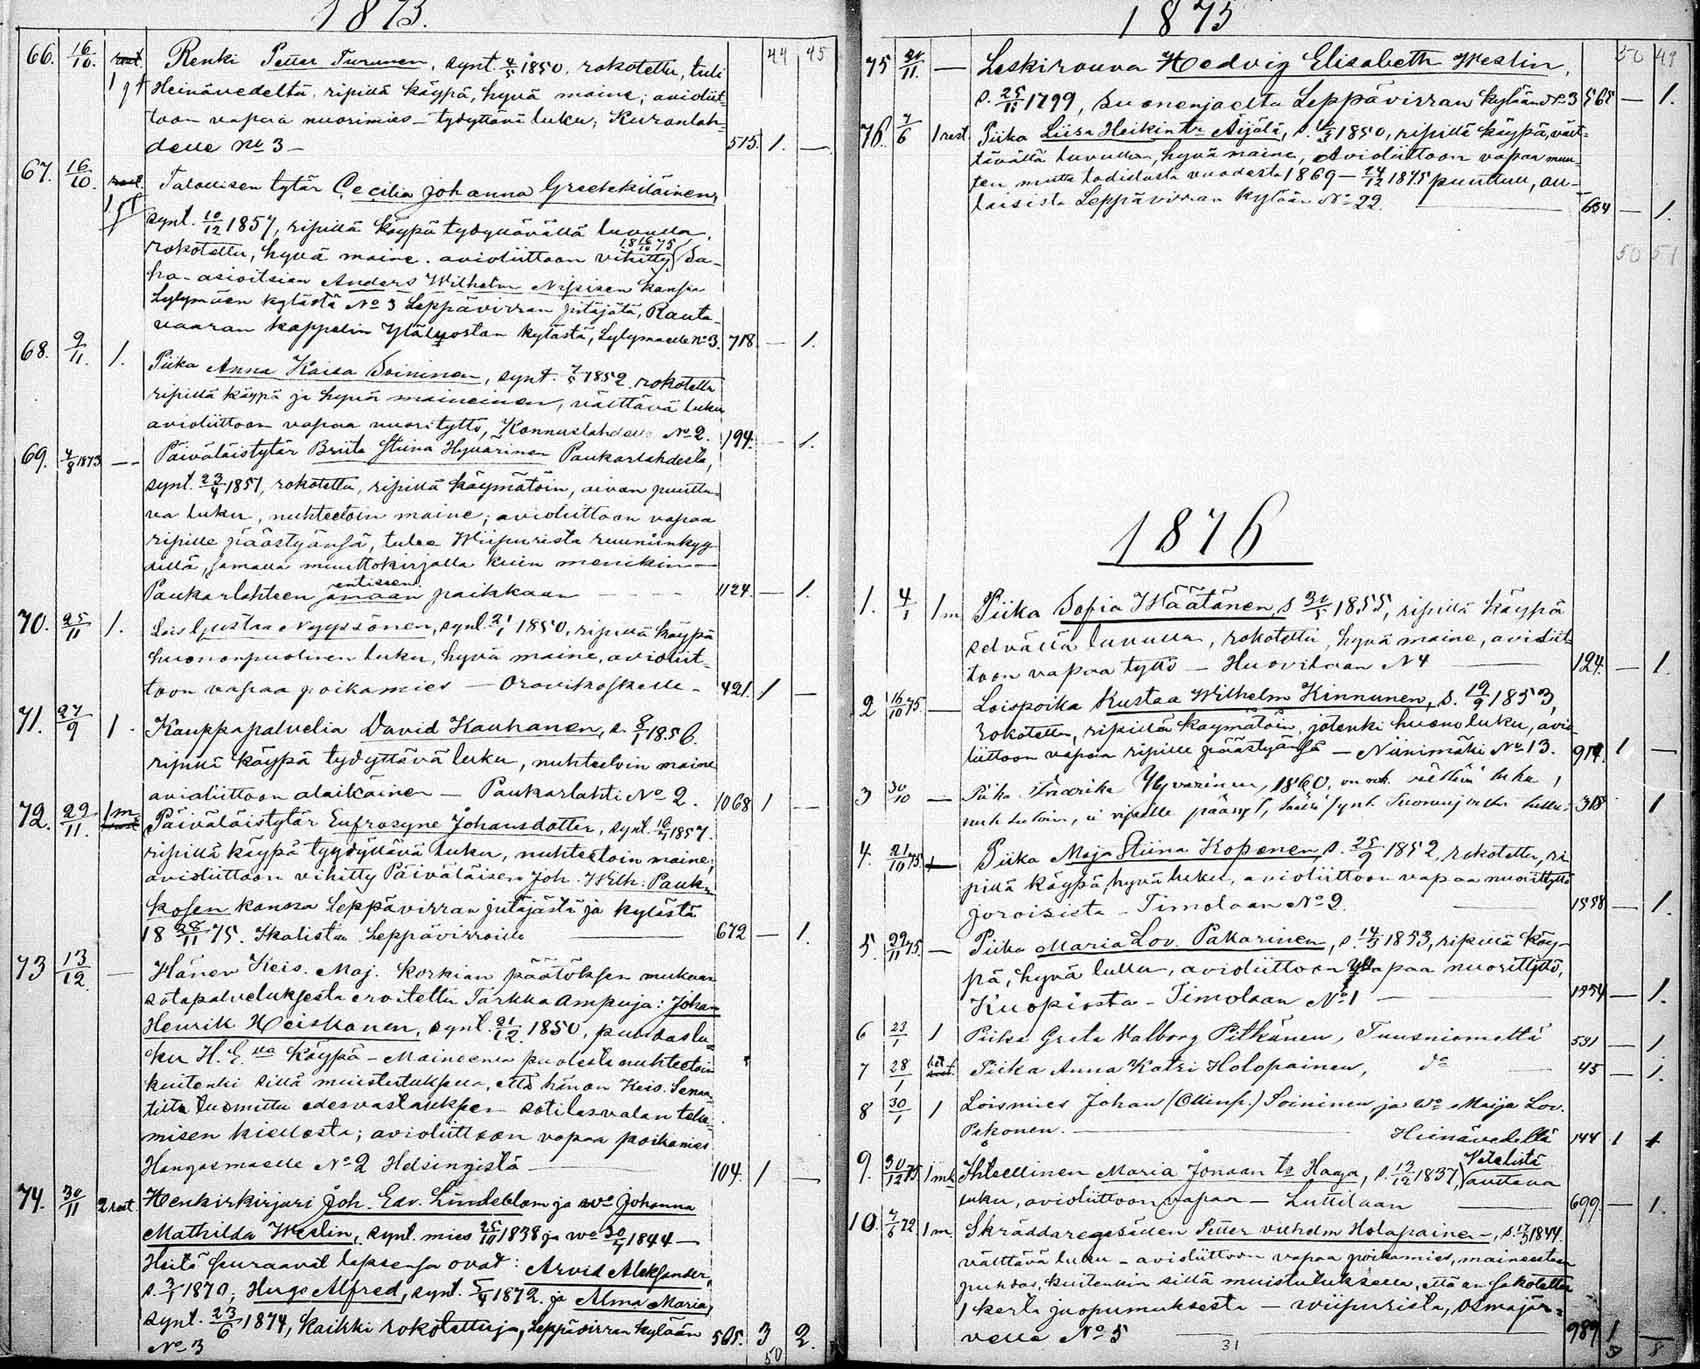 1875.
44 45
66. 16/10. rest. Renki Petter Turunen, synt. 4/5 1850, rokotettu, tuli
Heinävedeltä, ripillä käypä, hyvä maine; avioliit-
toon vapaa nuorimies – tydyttävä luku; Kuranlah-
delle No 3 – 515. 1. —
67. 16/10. rest. Talollisen tytär Cecilia Johanna
synt. 10/12 1857, ripillä käypä tydyttävällä luvulla,
rokotettu, hyvä maine. avioliittoon vihitty 18 16/10 75 Sa-
ha-asioitsian Anders Wilhelm Nissisen kanssa
kylästä No 3 Leppävirran pitäjätä, Rauta-
vaaran kappelin kylästä, No 3. 718. — 1.
68. 9/11. 1. Piika Anna Kaisa Soininen, synt. 7/5 1852. rokotettu
ripillä käypä ja hyvä maineinen, välttävä luku
avioliittoon vapaa nuorityttö, Konnuslahdelle No 2. 194. — 1.
69. 4/8 1873 — Päiväläistytär Briita Stiina Hyvärinen Paukarlahdesta,
synt. 23/4 1851, rokotettu, ripillä käymätöin, aivan puuttu-
va luku, nuhteetoin maine; avioliittoon vapaa
ripille päästyänsä, tulee Wiipurista ruununkyy-
dillä, samalla muuttokirjalla kuin menikin —
Paukarlahteen entiseen paikkaan — 1124. — 1.
70. 25/11 1. Lois Kustaa Nyyssönen, synt. 21/1 1850, ripillä käypä
huononpuolinen luku, hyvä maine, avioliit-
toon vapaa poikamies — Oravikoskelle – 421. 1 —
71. 27/9 1. Kauppapalvelia David Kauhanen, s. 8/1 1856.
ripillä käypä tydyttävä luku, nuhteetoin maine
avioliittoon alaikäinen — Paukarlahti No 2. 1068 1 —
72. 29/11. 1 m. Päiväläistytär Eufrosyne Johansdotter, synt. 16/4 1857.
ripillä käypä tyydyttävä luku, nuhteetoin maine,
avioliittoon vihitty Päiväläisen Joh. Wilh. Pauk-
kosen kanssa Leppävirran pitäjästä ja kylästä
18 28/11 75. Leppävirroille — 672 — 1.
73 13/12. — Hänen Keis. Maj. korkian päätöksen mukaan
sotapalveluksesta eroitettu Tarkka ampuja: Johan
Henrik Heiskanen, synt. 21/12 1850, puhdas lu-
ku H. E. käypä – Maineensa puolesta nuhteetoin
kuitenki sillä muistutuksella, että hän on Keis. Senaa-
tilta tuomittu edesvastaukseen sotilasvalan teke-
misen kiellosta; avioliittoon vapaa poikamies
Hangasmaelle No 2 Helsingistä — 104. 1 —
74. 30/11 2 rest. Henkikirjuri Joh. Edv. Lindeblom ja wo Johanna
Mathilda Weslin, synt. mies 25/10 1838 ja wo 30/4 1844 —
Heitä seuraavat lapsensa ovat: Arvid Aleksander,
s. 3/1 1870, Hugo Alfred, synt. 5/4 1872. ja Alma Maria,
synt. 23/6 1874, kaikki rokotettuja, Leppävirran kylään
No 3 565. 3 2.
50
1875
50 49
75 30/11. — Leskirouva Hedvig Elisabeth Weslin,
s. 25/11 1799, Suonenjoelta Leppävirran kylään No 3 565 — 1.
76. 7/6 1 rest. Piika Liisa Heikintr Äijälä, s. 1850, ripillä käypä, vält-
tävällä luvulla, hyvä maine, Avioliittoon vapaa muu-
ten mutta todistusta vuodesta 1869 — 24/12 1875 puuttuu,
Leppävirran kylään No 22. 634 — 1.
50 51
1876
1. 4/1 1 m Piika Sofia Määtänen, s 30/5 1855, ripillä käypä
selvällä luvulla, rokotettu, hyvä maine, avioliit-
toon vapaa tyttö — Huovilaan N 4 — 124. — 1.
2 16/10 75. — Loispoika Kustaa Wilhelm Kinnunen, s. 19/9 1853,
rokotettu, ripillä käymätöin, jotenki huono luku, avio-
liittoon vapaa ripille päästyänsä — Niinimäki No 13. 914. 1 —
3 30/10 — Piika Fredrika Hyvärinen, 1860, välttävä luku,
ei ripille päässyt, 318 1
4. 21/10 75 1 Piika Maja Stiina Koponen, s. 25/9 1852, rokotettu, ri-
pillä käypä, hyvä luku, avioliittoon vapaa nuorityttö
Joroisista – Timolaan No 2. — 1558 — 1.
5 29/11 75 — Piika Maria Lov. Pakarinen, s. 14/3 1853, ripillä käy-
pä, hyvä luku, avioliittoon vapaa nuorityttö,
Kuopiosta – Timolaan No 1 — 1554 — 1.
6 23/1 1 Piika Greta Walborg Pitkänen, Tuusniemeltä 531 — 1
7 28/1 Piika Anna Katri Holopainen, do — 45 — 1.
8 30/1 1 Loismies Johan (Ollinp.) Soininen ja wo Maija Lov.
Pekonen. — Heinävedeltä 144 1 1
9. 30/12 75 1 Itsellinen Maria Jonaan tr Haaja, s. 13/12 1837, Vitalistä auttava
luku, avioliittoon vapaa — Luttilaan — 699 — 1.
10. 7/6 72 1 m. Skräddaregesällen Petter Vilhelm Holopainen –, s. 1844.
välttävä luku – avioliittoon vapaa poikamies, maineeltaan
puhdas, kuitenkin sillä muistutuksella, että on sakotettu
1 kerta juopumuksesta — Wiipurista, Osmajär-
velle No 5 — 989 1 —
31 3 8